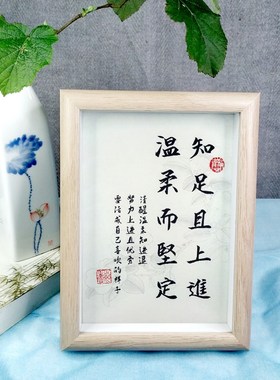 知足且上進
溫柔而堅定
清醒溫柔知進退
努力上進且優秀
要活成自己喜歡的樣子